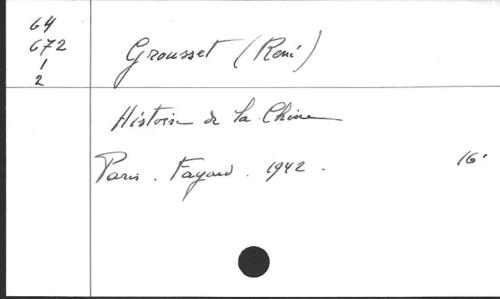 64
672
1
2
Grousset (René)
Histoire de la Chine
Paris. Fayard. 1942.
16°